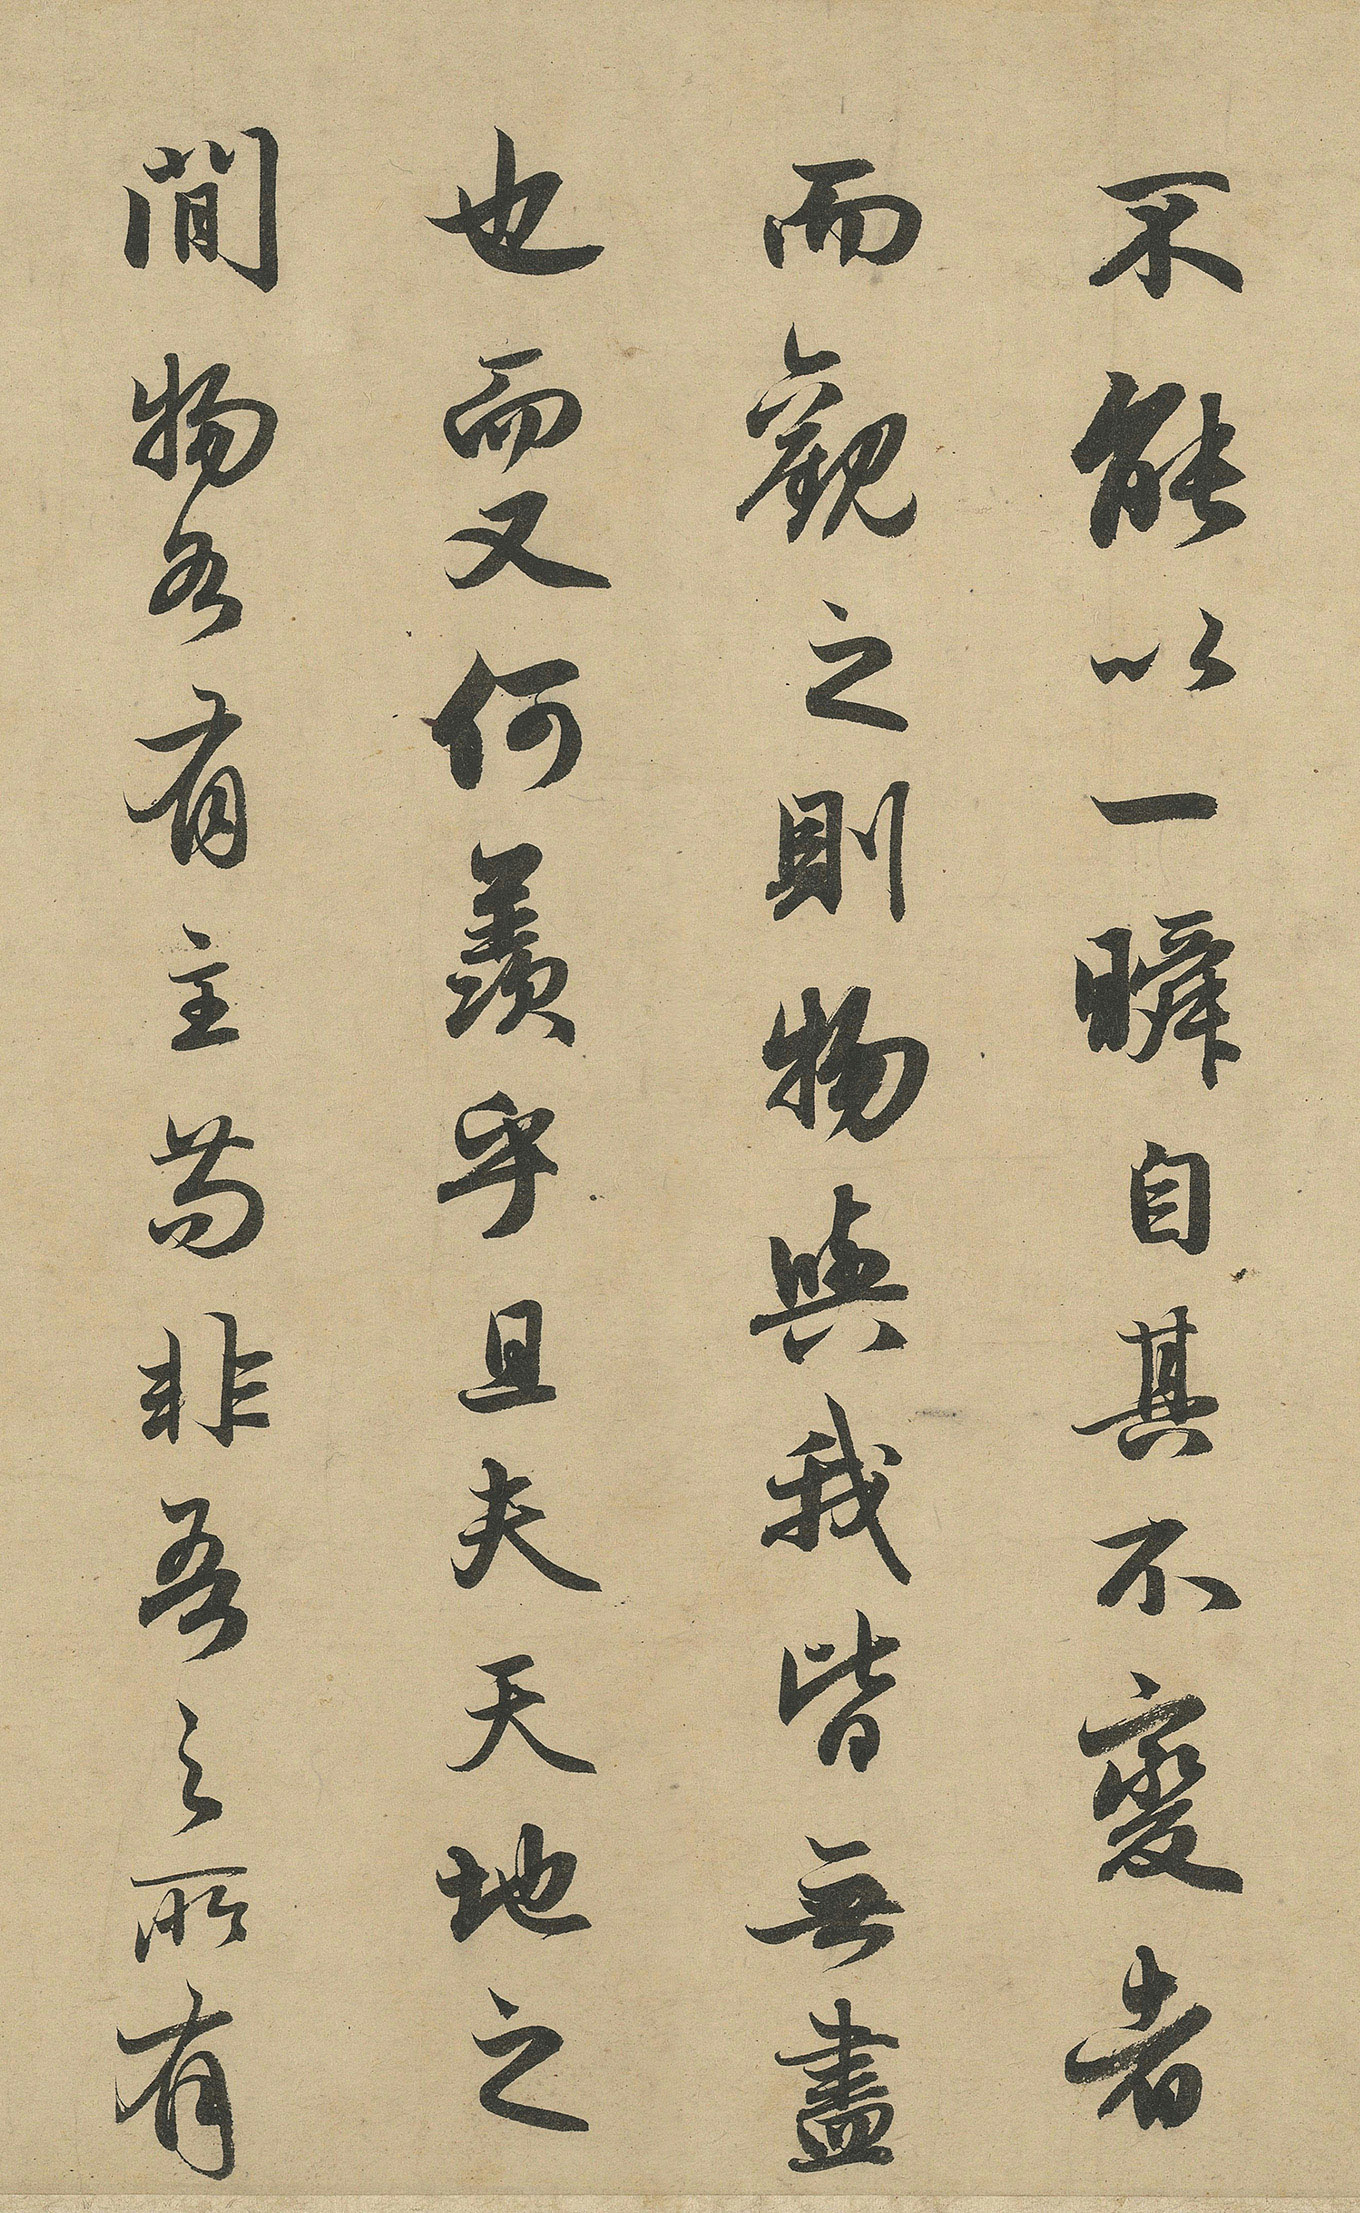 不能以一瞬自其不變者
而觀之則物與我皆無盡
也而又何羨乎且夫天地之
間物各有主苟非吾之所有